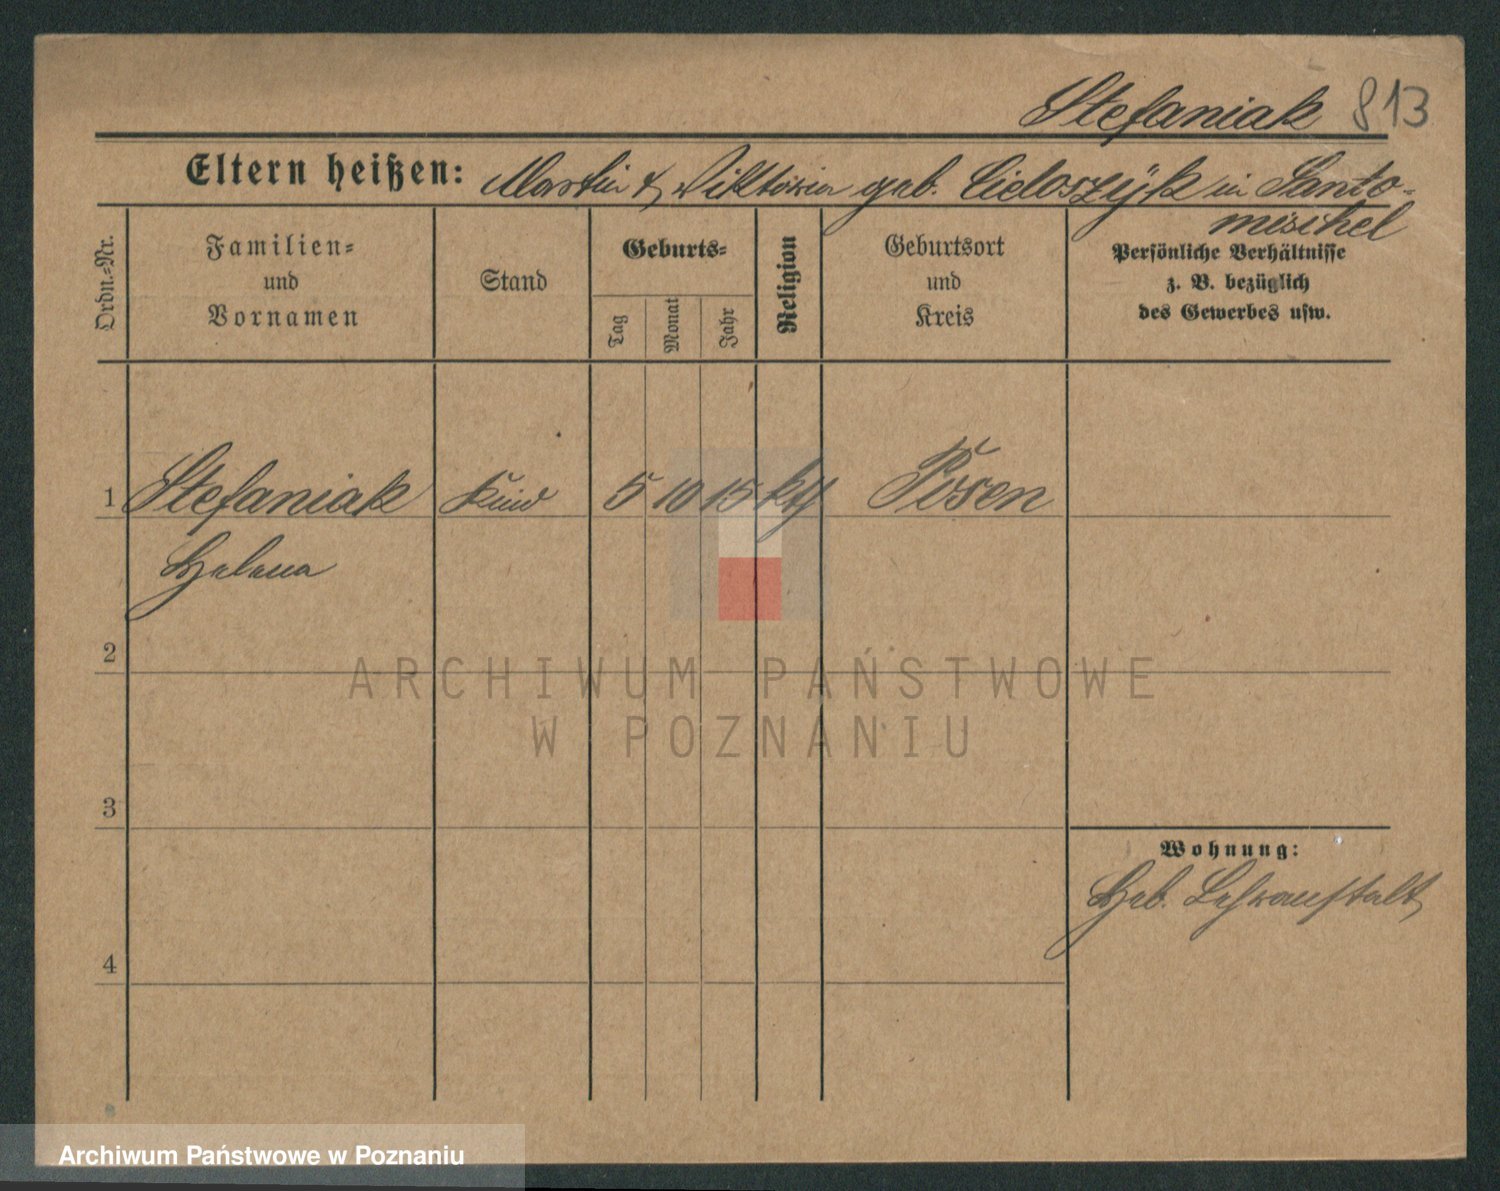 Stefaniak 813
Eltern heißen: Martin & Viktoria geb. Cieloszÿk in Santo-
mischel
Ordn.-Nr.
Familien-
und
Vornamen
Stand
Geburts-
Tag
Monat
Jahr
Religion
Geburtsort
und
Kreis
Persönliche Verhältnisse
z. B. bezüglich
des Gewerbes usw.
1 Stefaniak Kind 5 10 15 kth Posen
Helena
2
ARCHIWUM PAŃSTWOWE
W POZNANIU
3
Wohnung:
Heb. Lehranstalt
4
Archiwum Państwowe w Poznaniu